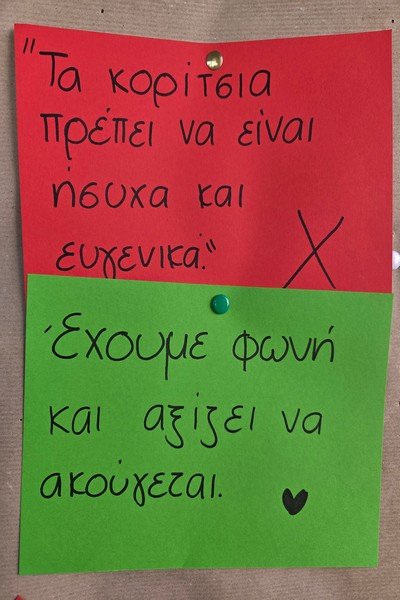 "Τα κορίτσια
πρέπει να είναι
ήσυχα και
ευγενικά."
X
Έχουμε φωνή
και αξίζει να
ακούγεται.